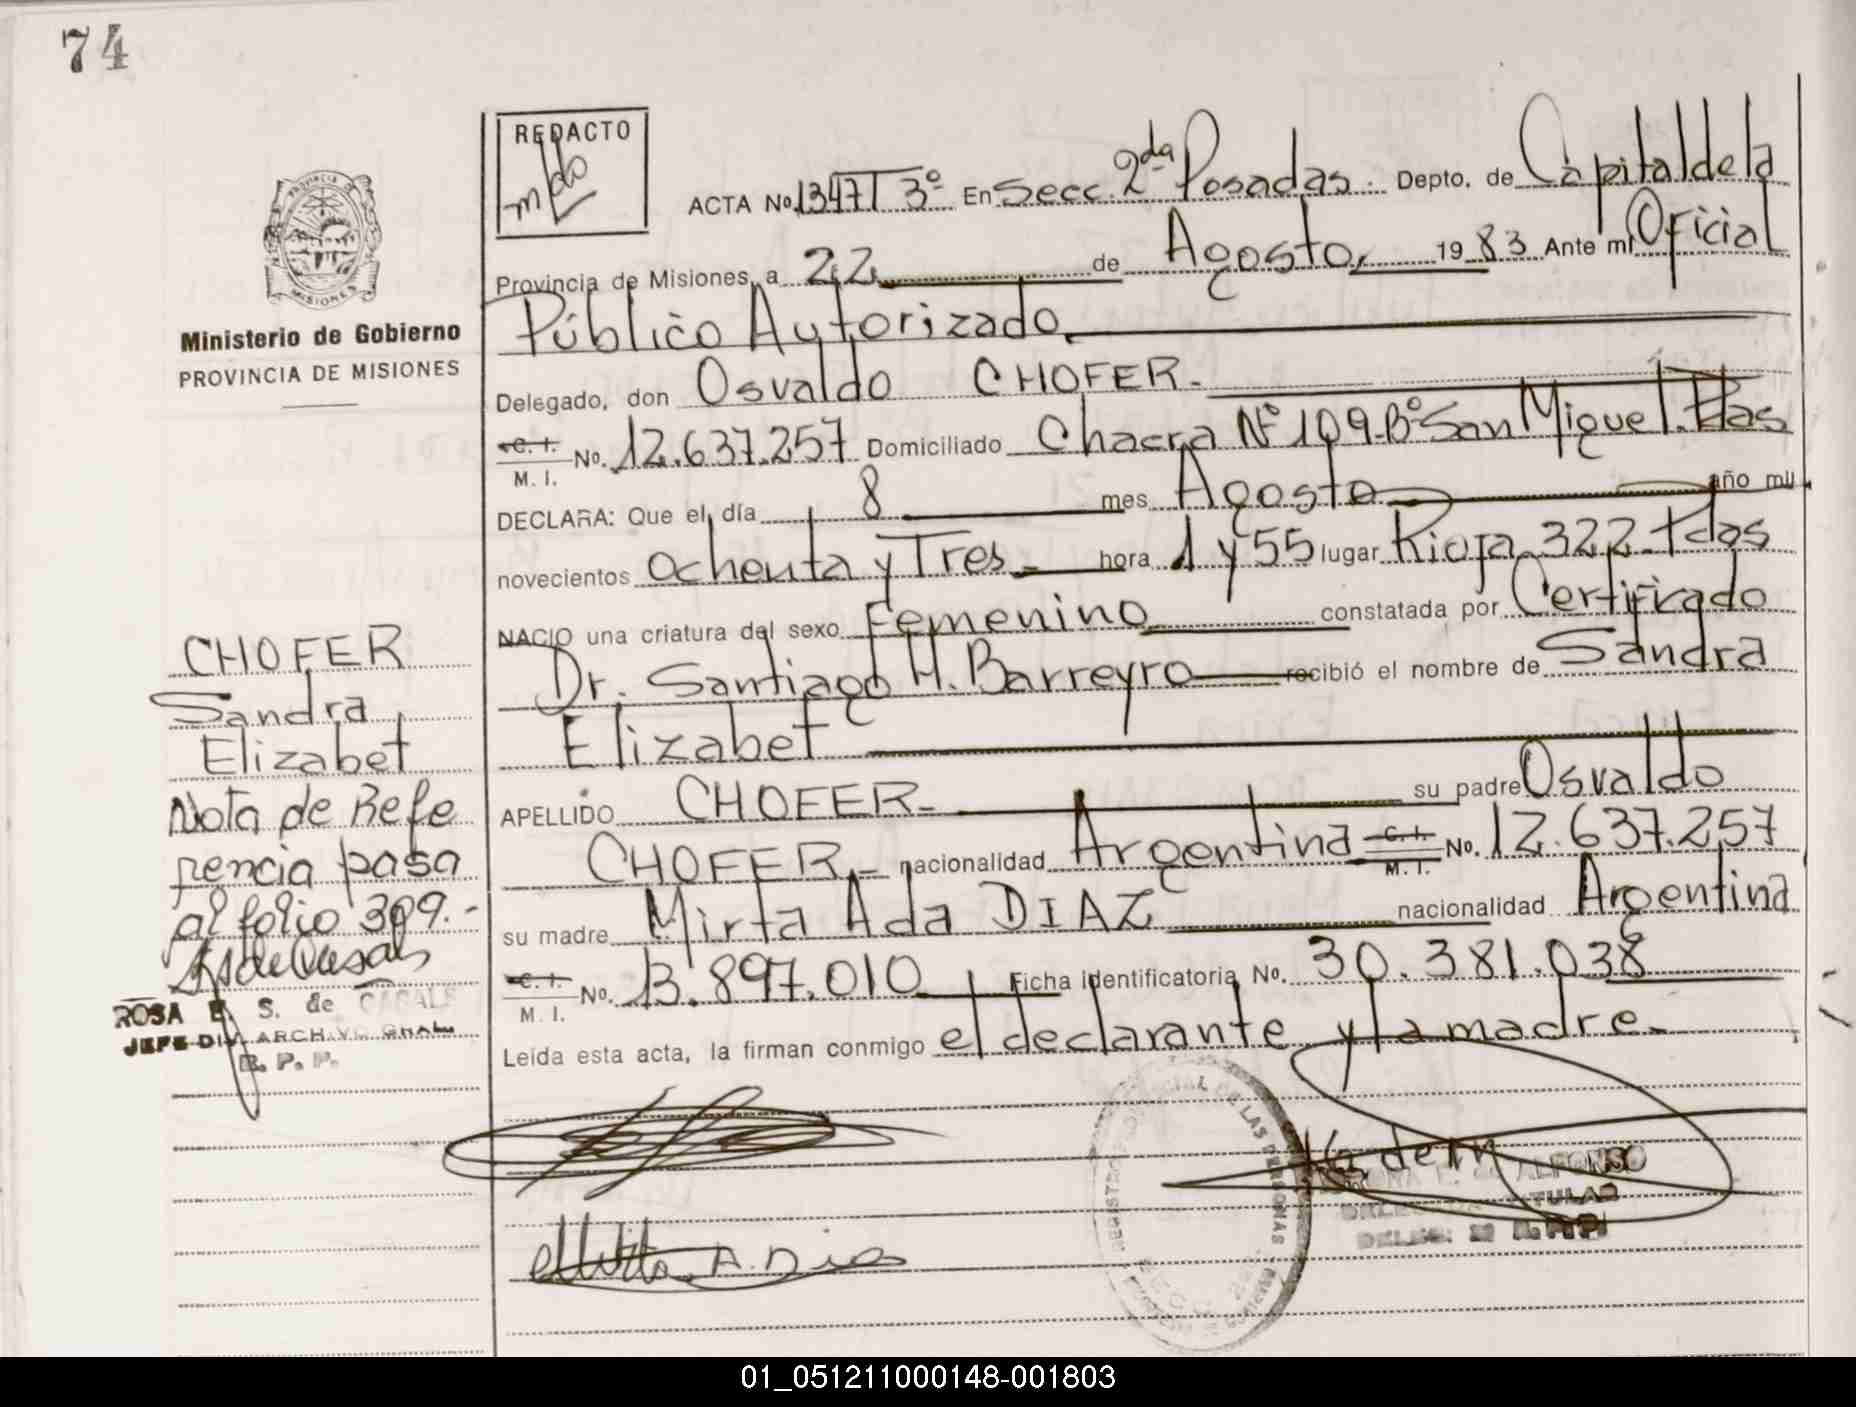 74
REDACTO
mldo
ACTA No. 1347 T 3º En Secc. 2da Posadas. Depto. de Capital de la
Provincia de Misiones, a 22 de Agosto, 1983 Ante mí Oficial
Público Autorizado,
Delegado, don Osvaldo CHOFER-
C. I.
M. I. No. 12.637.257 Domiciliado Chacra Nº 109-Bº San Miguel. Pdas
DECLARA: Que el día 8 mes Agosto año mil
novecientos ochenta y Tres hora 1 y 55 lugar Rioja 322-Pdas
NACIO una criatura del sexo Femenino constatada por Certificado
Dr. Santiago H. Barreyro recibió el nombre de Sandra
Elizabet
APELLIDO CHOFER- su padre Osvaldo
CHOFER- nacionalidad Argentina C. I. M. I. No. 12.637.257
su madre Mirta Ada DIAZ nacionalidad Argentina
C. I.
M. I. No. 13.897.010 Ficha identificatoria No. 30.381.038
Leida esta acta, la firman conmigo el declarante y la madre-
Mirta A. Diaz
PROVINCIA DE
MISIONES
Ministerio de Gobierno
PROVINCIA DE MISIONES
CHOFER
Sandra
Elizabet
Nota de Refe
rencia pasa
al folio 399.-
ROSA E. S. de CASALS
JEFE DIV. ARCHIVO GRAL
R. P. P.
REGISTRO PROVINCIAL DE LAS PERSONAS
ALFONSO
TITULAR
01_051211000148-001803